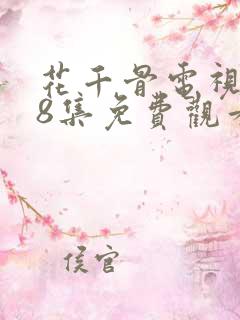 花千骨電視
8集免費觀
侯官